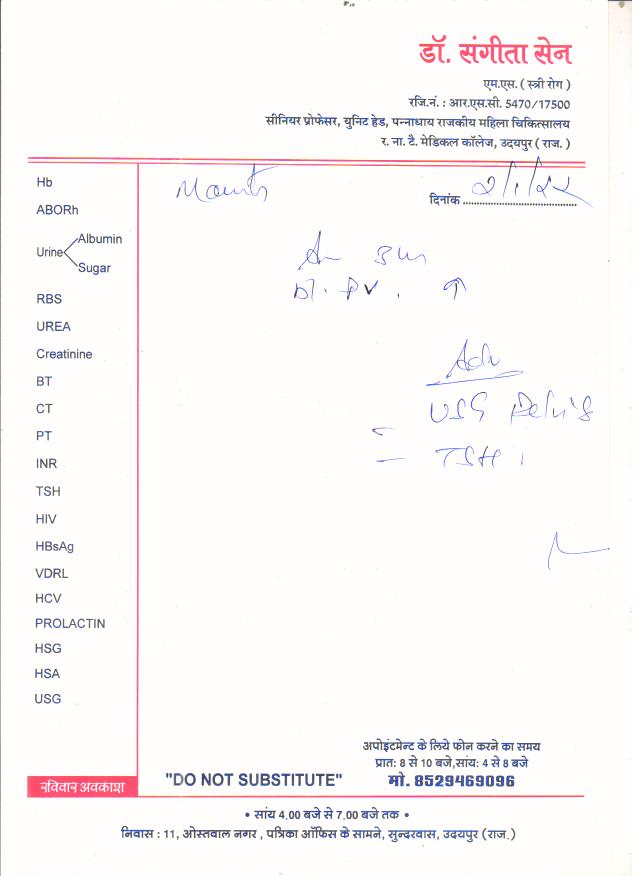 डॉ. संगीता सेन
एम.एस. ( स्त्री रोग )
रजि.नं. : आर.एस.सी. 5470/17500
सीनियर प्रोफेसर, युनिट हेड, पन्नाधाय राजकीय महिला चिकित्सालय
र. ना. टै. मेडिकल कॉलेज, उदयपुर ( राज. )
दिनांक
Hb
ABORh
Urine Albumin
Sugar
RBS
UREA
Creatinine
BT
CT
PT
INR
TSH
HIV
HBsAg
VDRL
HCV
PROLACTIN
HSG
HSA
USG
PV.
Adv
USG Pelvis
TSH
अपोइंटमेन्ट के लिये फोन करने का समय
प्रात: 8 से 10 बजे,सांय: 4 से 8 बजे
मो. 8529469096
"DO NOT SUBSTITUTE"
रविवार अवकाश
• सांय 4.00 बजे से 7.00 बजे तक •
निवास : 11, ओस्तवाल नगर , पत्रिका ऑफिस के सामने, सुन्दरवास, उदयपुर (राज.)